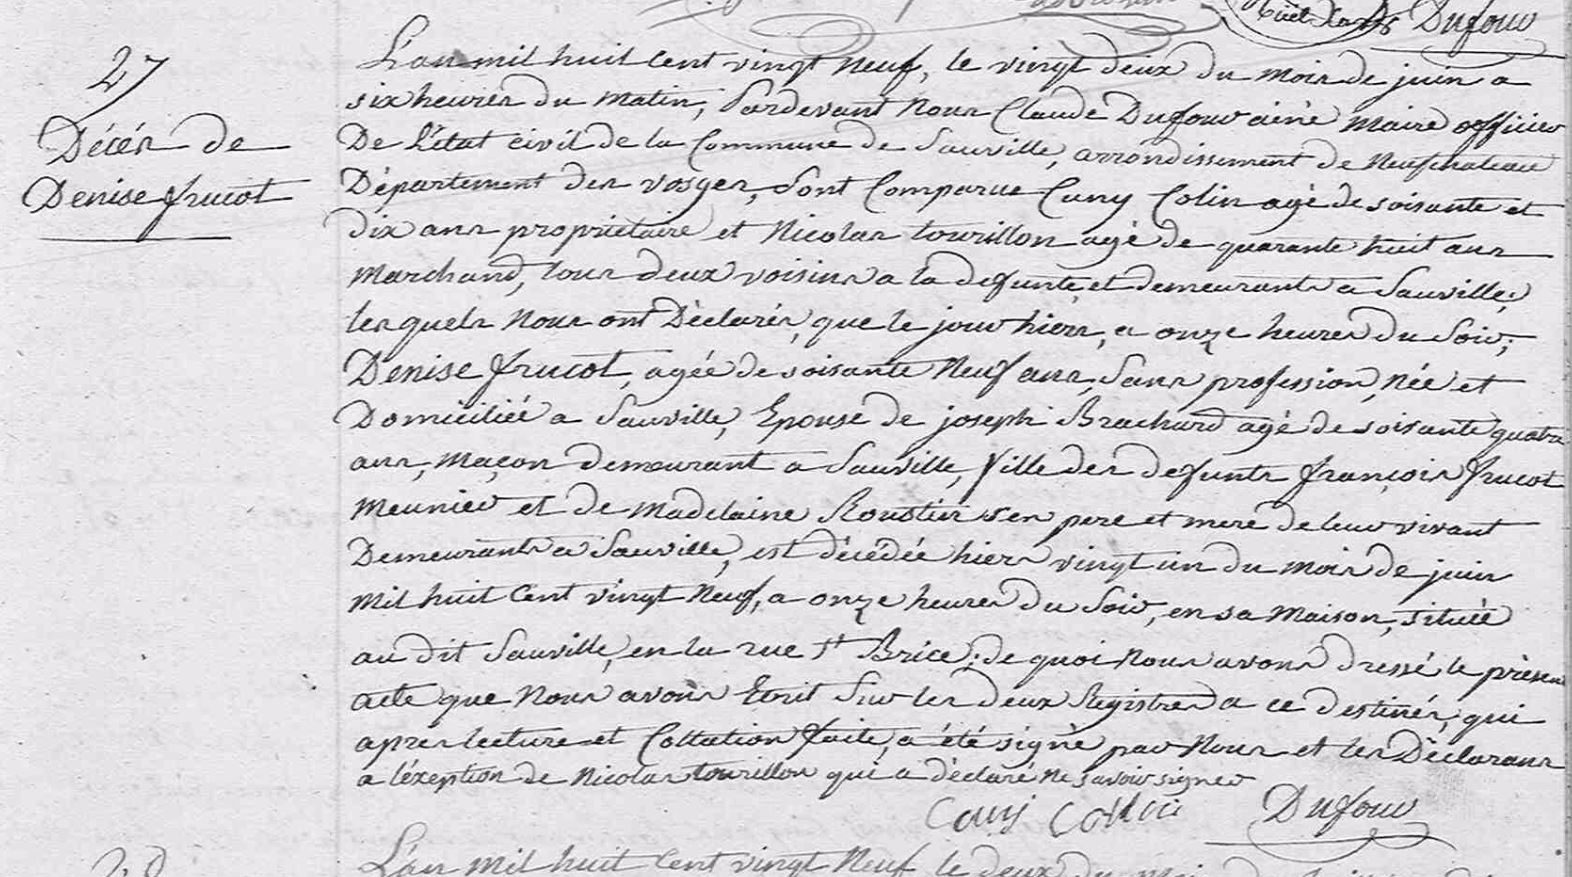 Dufour
27
Décés de
Denise frucot
L'an mil huit Cent vingt Neuf, le vingt deux du mois de juin a
six heures du matin, Pardevant Nous Claude Dufour ainé Maire officier
De L'état civil de la Commune de Sauville, arrondissement de Neufchateau
Département des vosges, sont Comparus Cuny Colin agé de soisante et
dix ans propriétaire et Nicolas tourillon agé de quarante huit ans
Marchand, tous deux voisins a la defunte, et demeurants a Sauville;
lesquels Nous ont Déclarés, que le jour hiers, a onze heures du Soir;
Denise frucot, agée de soisante Neuf ans, Sans profession, Née et
Domiciliée a Sauville, Epouse de joseph Brachard agé de soisante quatre
ans, maçon demeurant a Sauville, fille des defunts françois frucot
Meunier et de Madelaine Roustier ses pere et mere de leur vivant
Demeurants a Sauville, est décédée hiers vingt un du mois de juin
Mil huit Cent vingt Neuf, a onze heures du Soir, en sa Maison, située
au dit Sauville, en la rue St Brice; de quoi Nous avons dressé le présent
acte que Nous avons Ecrit Sur les deux Registres a ce destinés, qui
apres lecture et Collation faite, a été signé par Nous et les Déclarans
a l'éxeption de Nicolas tourillon qui a déclaré ne savoir signer
Cuny Collin Dufour
28
L'an mil huit Cent vingt Neuf le deux du moi